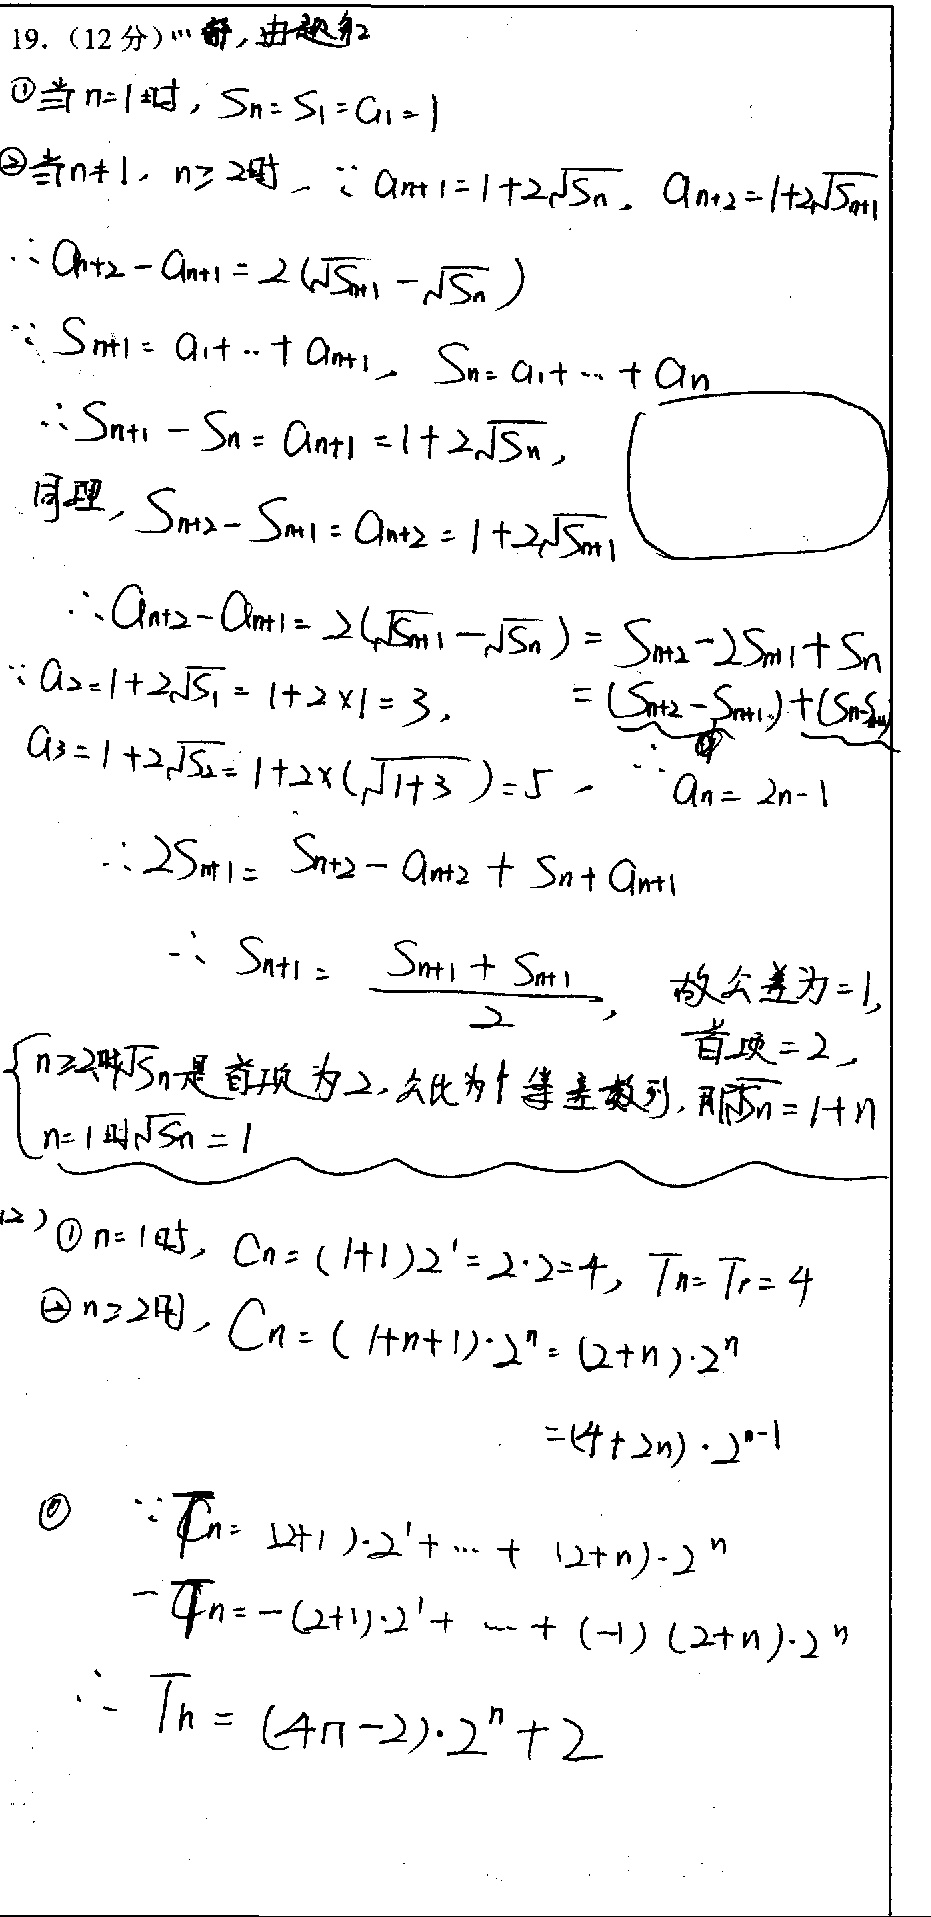 19.（12分）(1) 解,由题知
①当n=1时, Sn=S1=a1=1
②当n≠1, n≥2时, ∵ an+1=1+2√Sn, an+2=1+2√Sn+1
∴an+2-an+1=2(√Sn+1-√Sn)
∵Sn+1=a1+…+an+1, Sn=a1+…+an
∴Sn+1-Sn=an+1=1+2√Sn,
同理, Sn+2-Sn+1=an+2=1+2√Sn+1
∴an+2-an+1=2(√Sn+1-√Sn)=Sn+2-2Sn+1+Sn
∵a2=1+2√S1=1+2×1=3, =(Sn+2-Sn+1)+(Sn-Sn+1)
a3=1+2√S2=1+2×(√1+3)=5, ∴an=2n-1
∴2Sn+1=Sn+2-an+2+Sn+an+1
∴Sn+1=(Sn+1+Sn+1)/2, 故公差为=1,
首项=2,
n≥2时√Sn是首项为2,公比为1等差数列,则√Sn=1+n
n=1时√Sn=1
(2) ①n=1时, Cn=(1+1)2^1=2·2=4, Tn=T1=4
②n≥2时, Cn=(1+n+1)·2^n=(2+n)·2^n
=(4+2n)·2^n-1
∵Tn=(2+1)·2^1+…+(2+n)·2^n
-Tn=-(2+1)·2^1+…+(-1)(2+n)·2^n
∴Tn=(4n-2)·2^n+2